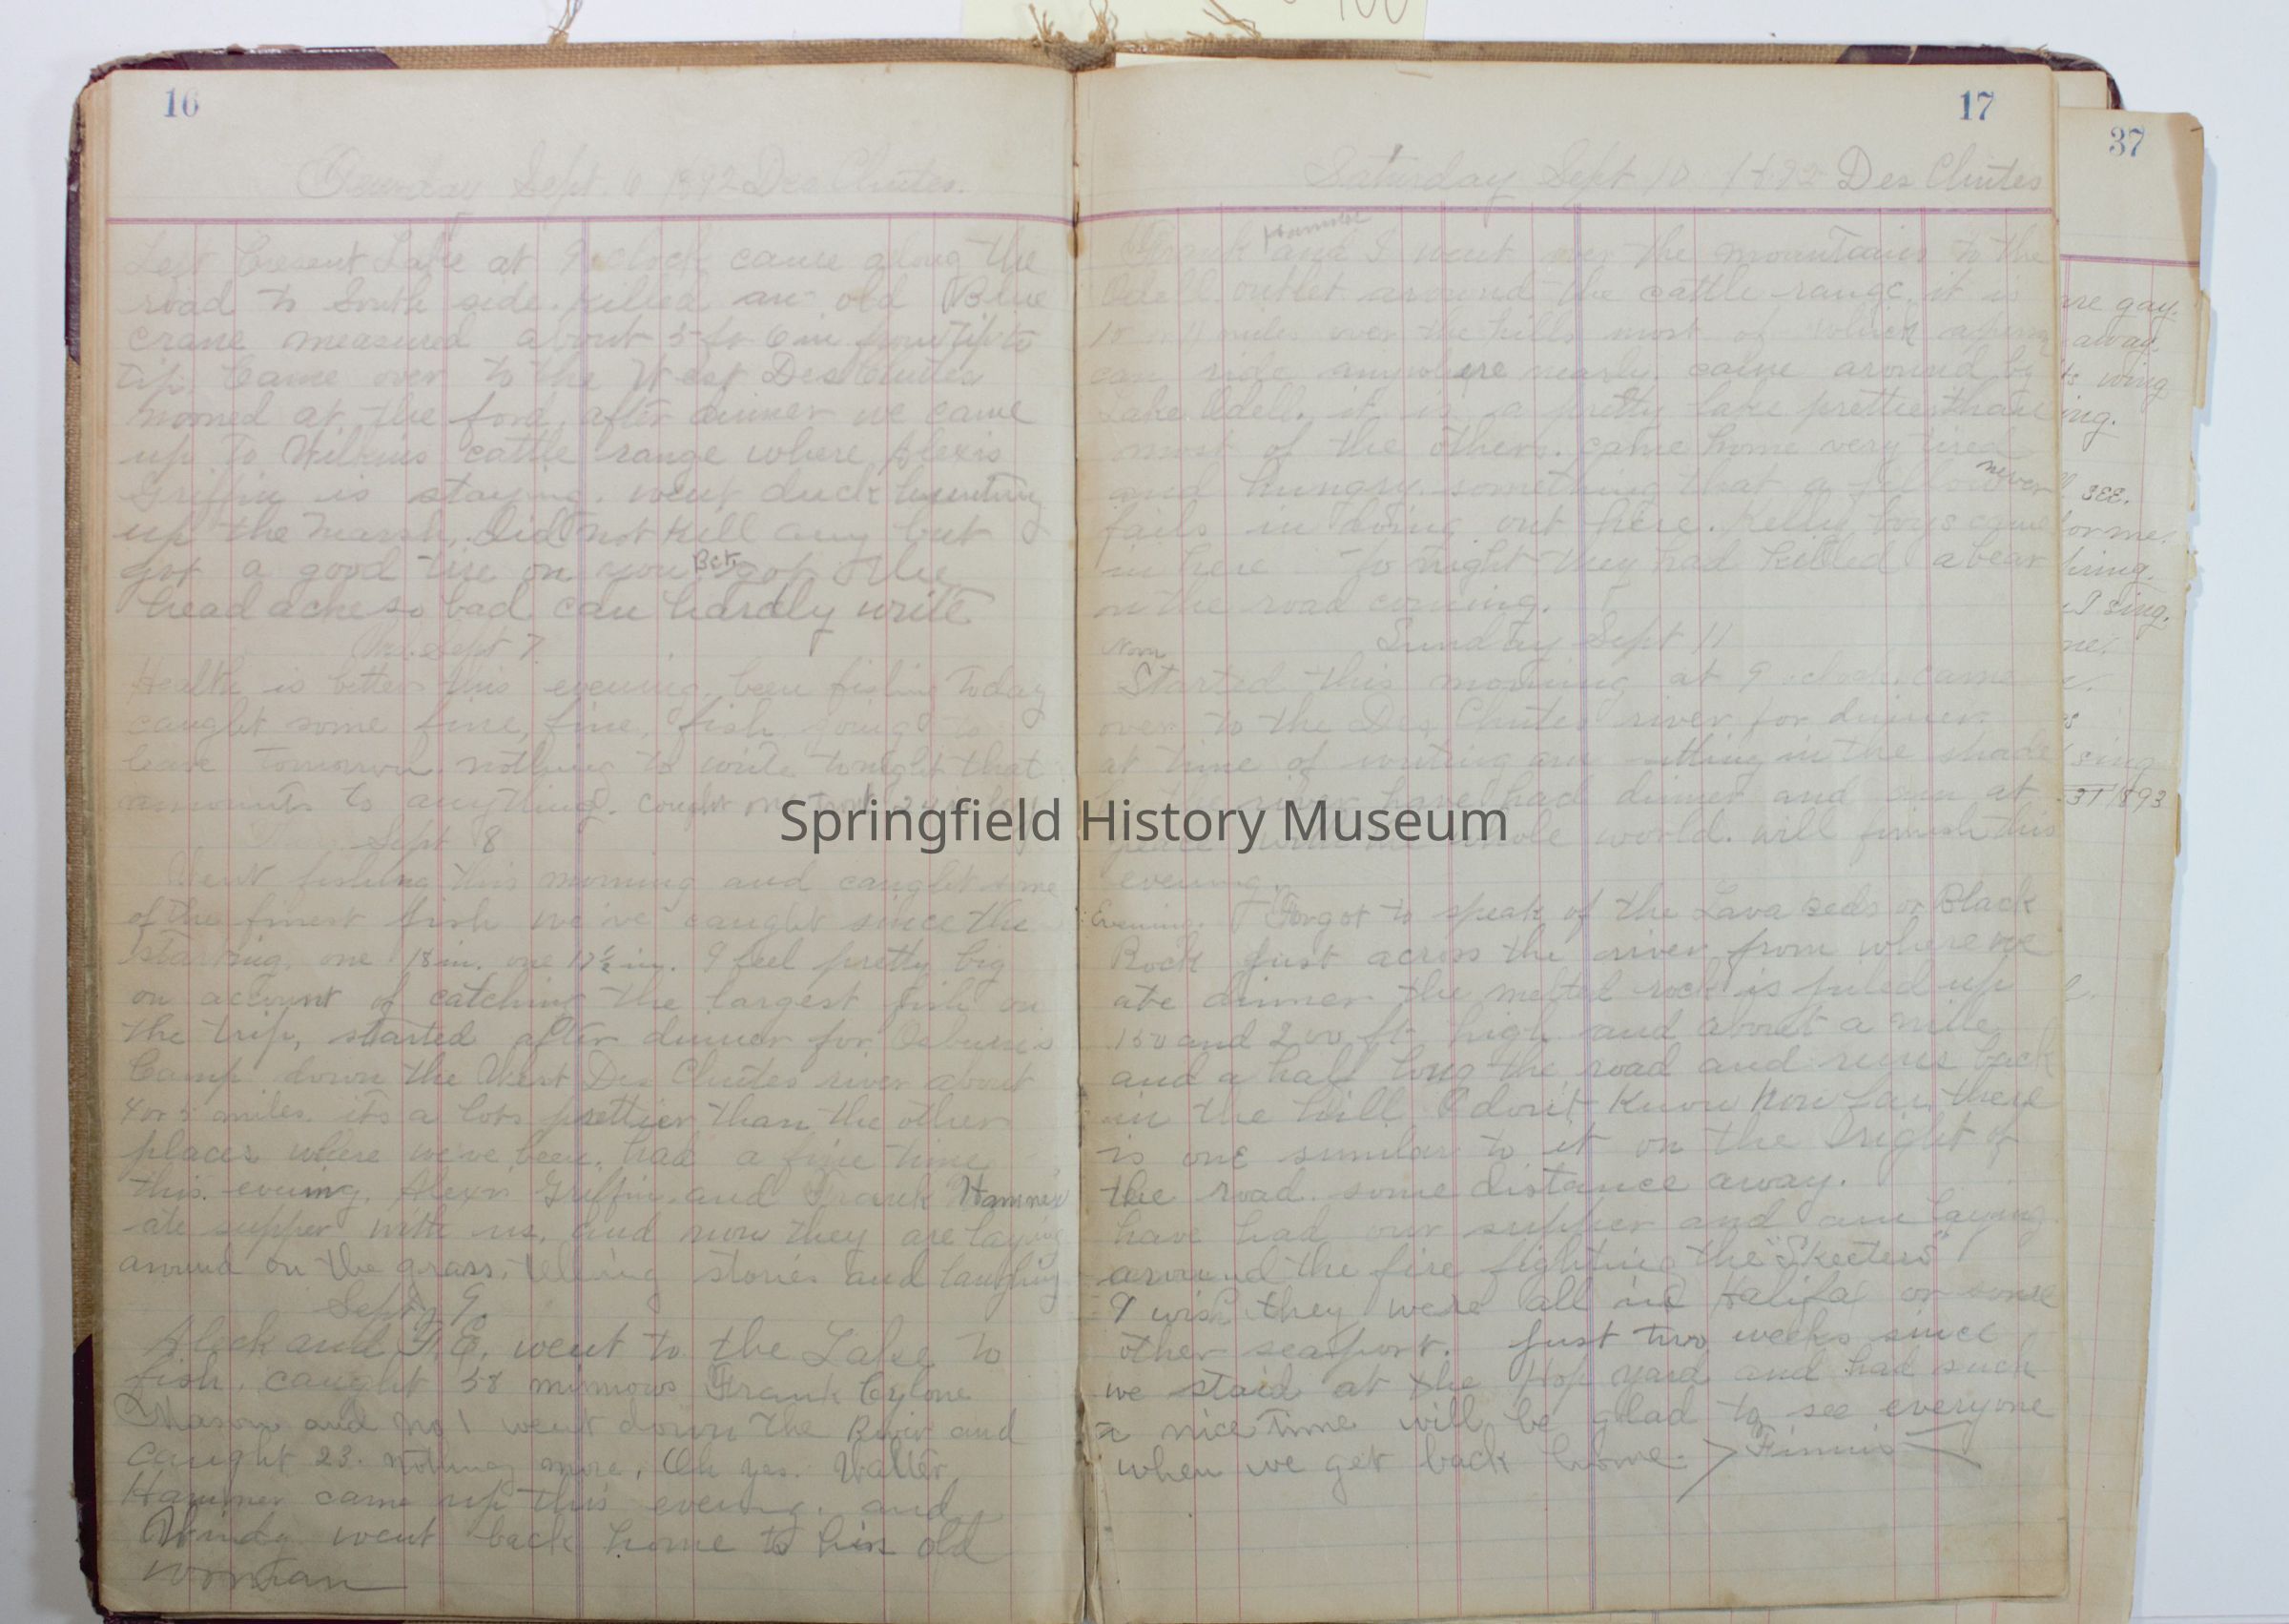 16
Sept. 6 1892 Des Chutes.
Left Cresent Lake at 9 oclock came along the
road to South side. Killed an old Blue
crane measured about 5 ft 6 in from tip to
tip. Came over to the West Des Chutes
nooned at the ford, after dinner we came
up to Wilkins cattle range where Alexis
Griffin is staying. went duck hunting
up the marsh, did not kill any but
got a good tire on you Bet.
head ache so bad can hardly write
Wed. Sept 7
Health is better this evening, been fishing today
caught some fine, fine, fish going to
leave tomorrow. nothing to write tonight that
amounts to anything. caught one trout
Sept 8
Went fishing this morning and caught some
of the finest fish we've caught since the
starting, one 18 in. one 17½ in. I feel pretty big
on account of catching the largest fish on
the trip, started after dinner for Osburn's
Camp down the West Des Chutes river about
4 or 5 miles. its a lots prettier than the other
places where we've been, had a fine time
this evening, Alexis Griffin and Frank Hammer
ate supper with us, and now they are laying
around on the grass, telling stories and laughing
Sept 9.
Aleck and F.E. went to the Lake to
fish. caught 58 minnows Frank Cylone
Mason and No 1 went down the River and
caught 23. nothing more, Oh yes. Walter
Hammer came up this evening. and
Windy went back home to his old
woman
17
Saturday Sept 10 1892 Des Chutes
Frank Hammer and I went over the mountains to the
Odell outlet around the cattle range, it is
10 or 11 miles over the hills most of which a
can ride anywhere nearly. came around by
Lake Odell. it is a pretty lake prettier than
most of the others. came home very tired
and hungry. something that a fellow never
fails in doing out here. Kelly boys came
in here to night they had killed a bear
on the road coming.
Sunday Sept 11
Noon
Started this morning at 9 oclock. came
over to the Des Chutes river for dinner
at time of writing am sitting in the shade
river have had dinner and am at
peace with the whole world. will finish this
evening.
Evening. I Forgot to speak of the Lava Beds or Black
Rock just across the river from where we
ate dinner the melted rock is piled up
150 and 200 ft high and about a mile
and a half long the road and runs back
in the hill I don't know how far. there
is one similar to it on the right of
the road. some distance away.
have had our supper and am laying
around the fire fighting the "Skeeters"
I wish they were all in Halifax or some
other seaport. Just two weeks since
we staid at the Hop yard and had such
a nice time will be glad to see everyone
when we get back home. Finnis
37
are gay.
away.
wing
ing.
see.
for me.
bring.
I sing.
me.
sing
31 1893
Springfield History Museum